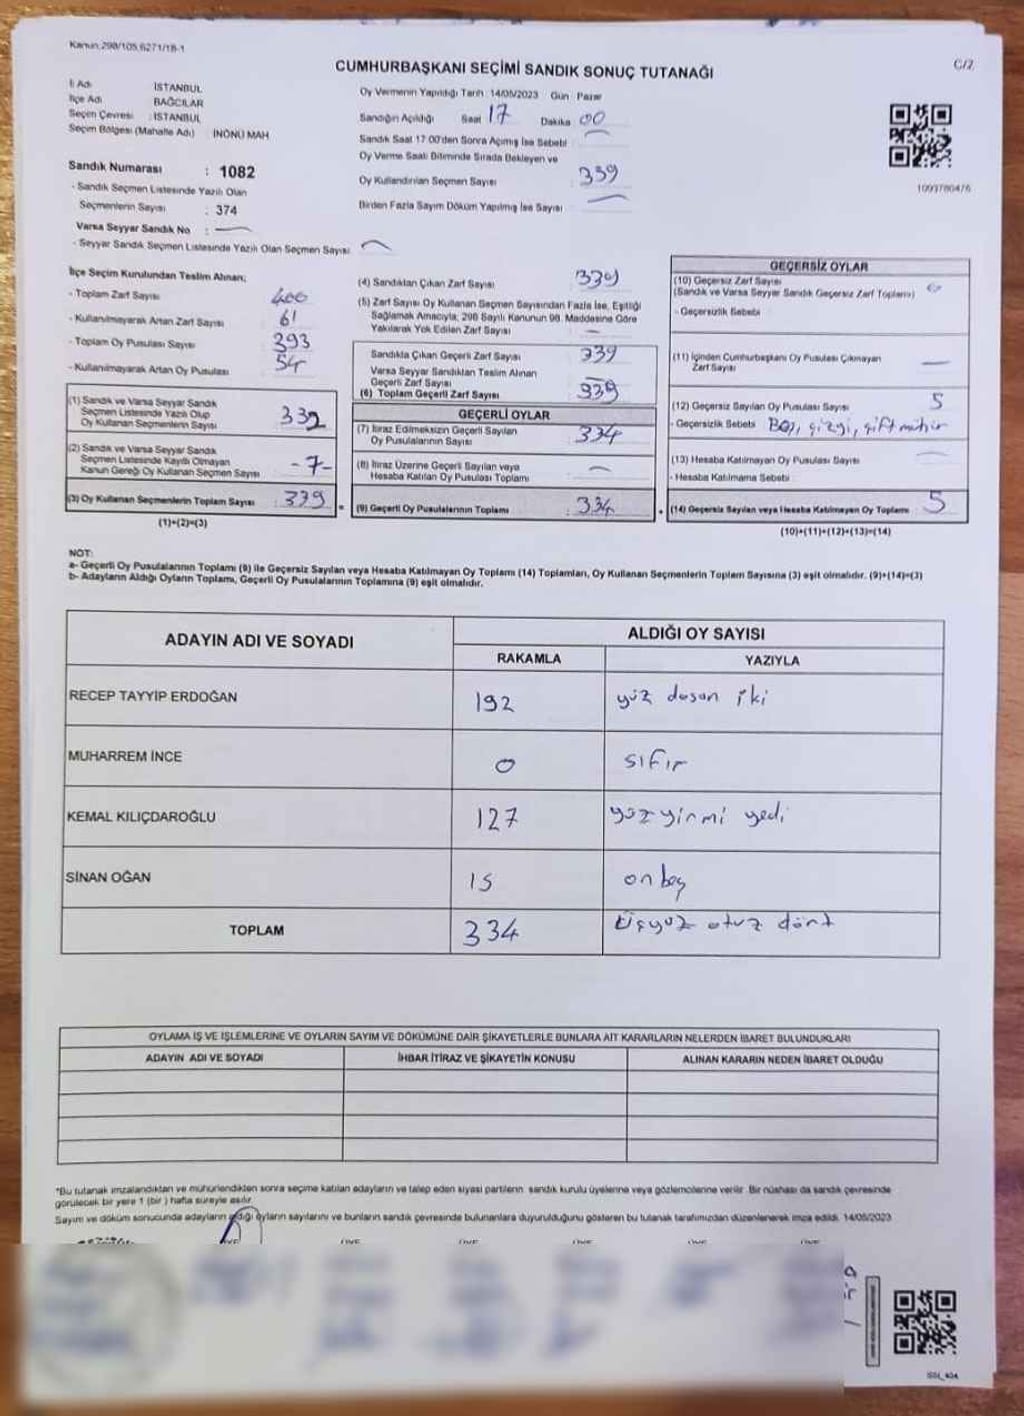 Kanun:298/105,6271/18-1
C/2
CUMHURBAŞKANI SEÇİMİ SANDIK SONUÇ TUTANAĞI
İl Adı : İSTANBUL
İlçe Adı : BAĞCILAR
Seçim Çevresi : İSTANBUL
Seçim Bölgesi (Mahalle Adı) : İNÖNÜ MAH
Sandık Numarası : 1082
- Sandık Seçmen Listesinde Yazılı Olan
Seçmenlerin Sayısı : 374
Varsa Seyyar Sandık No : —
- Seyyar Sandık Seçmen Listesinde Yazılı Olan Seçmen Sayısı: —
Oy Vermenin Yapıldığı Tarih :14/05/2023 Gün : Pazar
Sandığın Açıldığı Saat : 17 Dakika : 00
Sandık Saat 17:00'den Sonra Açımış İse Sebebi : —
Oy Verme Saati Bitiminde Sırada Bekleyen ve
Oy Kullandırılan Seçmen Sayısı : 339
Birden Fazla Sayım Döküm Yapılmış İse Sayısı : —
1093780476
İlçe Seçim Kurulundan Teslim Alınan;
- Toplam Zarf Sayısı : 400
- Kullanılmayarak Artan Zarf Sayısı : 61
- Toplam Oy Pusulası Sayısı : 393
- Kullanılmayarak Artan Oy Pusulası : 54
(1) Sandık ve Varsa Seyyar Sandık
Seçmen Listesinde Yazılı Olup
Oy Kullanan Seçmenlerin Sayısı : 332
(2) Sandık ve Varsa Seyyar Sandık
Seçmen Listesinde Kayıtlı Olmayan
Kanun Gereği Oy Kullanan Seçmen Sayısı : -7-
(3) Oy Kullanan Seçmenlerin Toplam Sayısı : 339
(1)+(2)=(3)
(4) Sandıktan Çıkan Zarf Sayısı : 339
(5) Zarf Sayısı Oy Kullanan Seçmen Sayısından Fazla İse, Eşitliği
Sağlamak Amacıyla, 298 Sayılı Kanunun 98. Maddesine Göre
Yakılarak Yok Edilen Zarf Sayısı : —
Sandıkta Çıkan Geçerli Zarf Sayısı : 339
Varsa Seyyar Sandıktan Teslim Alınan
Geçerli Zarf Sayısı : —
(6) Toplam Geçerli Zarf Sayısı : 339
GEÇERLİ OYLAR
(7) İtiraz Edilmeksizin Geçerli Sayılan
Oy Pusulalarının Sayısı : 334
(8) İtiraz Üzerine Geçerli Sayılan veya
Hesaba Katılan Oy Pusulası Toplamı : —
(9) Geçerli Oy Pusulalarının Toplamı : 334
GEÇERSİZ OYLAR
(10) Geçersiz Zarf Sayısı
(Sandık ve Varsa Seyyar Sandık Geçersiz Zarf Toplamı)
- Geçersizlik Sebebi :
(11) İçinden Cumhurbaşkanı Oy Pusulası Çıkmayan
Zarf Sayısı : —
(12) Geçersiz Sayılan Oy Pusulası Sayısı : 5
- Geçersizlik Sebebi : Boş, çizgi, çift mühür
(13) Hesaba Katılmayan Oy Pusulası Sayısı : —
- Hesaba Katılmama Sebebi :
(14) Geçersiz Sayılan veya Hesaba Katılmayan Oy Toplamı : 5
(10)+(11)+(12)+(13)=(14)
NOT:
a- Geçerli Oy Pusulalarının Toplamı (9) ile Geçersiz Sayılan veya Hesaba Katılmayan Oy Toplamı (14) Toplamları, Oy Kullanan Seçmenlerin Toplam Sayısına (3) eşit olmalıdır. (9)+(14)=(3)
b- Adayların Aldığı Oyların Toplamı, Geçerli Oy Pusulalarının Toplamına (9) eşit olmalıdır.
ADAYIN ADI VE SOYADI
ALDIĞI OY SAYISI
RAKAMLA YAZIYLA
RECEP TAYYİP ERDOĞAN 192 yüz doksan iki
MUHARREM İNCE 0 sıfır
KEMAL KILIÇDAROĞLU 127 yüz yirmi yedi
SİNAN OĞAN 15 on beş
TOPLAM 334 üçyüz otuz dört
OYLAMA İŞ VE İŞLEMLERİNE VE OYLARIN SAYIM VE DÖKÜMÜNE DAİR ŞİKAYETLERLE BUNLARA AİT KARARLARIN NELERDEN İBARET BULUNDUKLARI
ADAYIN ADI VE SOYADI İHBAR İTİRAZ VE ŞİKAYETİN KONUSU ALINAN KARARIN NEDEN İBARET OLDUĞU
*Bu tutanak imzalandıktan ve mühürlendikten sonra seçime katılan adayların ve talep eden siyasi partilerin sandık kurulu üyelerine veya gözlemcilerine verilir. Bir nüshası da sandık çevresinde
görülecek bir yere 1 (bir ) hafta süreyle asılır.
Sayım ve döküm sonucunda adayların aldığı oyların sayılarını ve bunların sandık çevresinde bulunanlara duyurulduğunu gösteren bu tutanak tarafımızdan düzenlenerek imza edildi. 14/05/2023